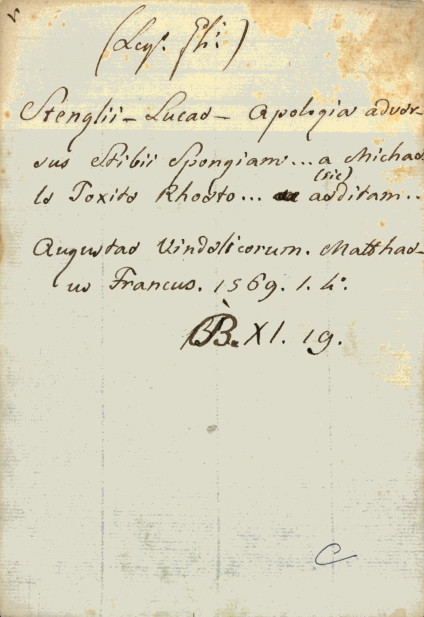 (Leg. Phi.)
Stenglii - Lucae - Apologia adver-
sus Stibii Spongiam... a Michae-
(sic)
le Toxite Rhoeto... aeditam..
Augustae Vindelicorum. Matthae-
us Francus. 1569. 1. 4°.
B. XI. 19.
C